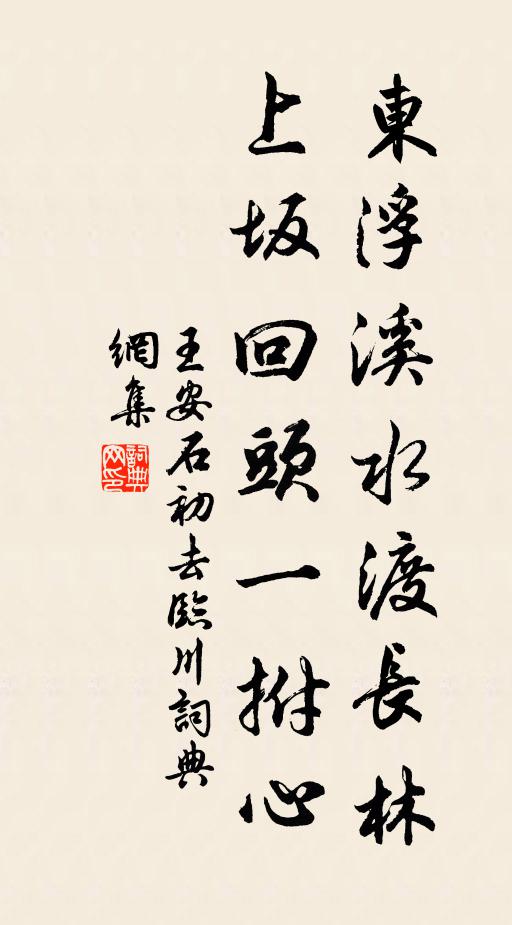 東浮溪水渡長林
上坂回頭一拊心
王安石初去臨川詞典
網集
詞典
网印